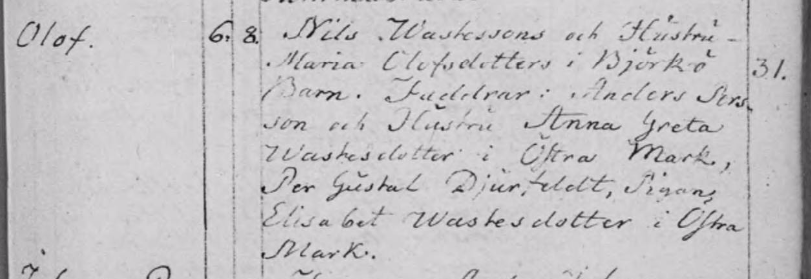 Olof. 6. 8. Nils Wastessons och Hustru
Maria Olofsdotters i Björkö 31.
Barn. Faddrar: Anders Pers-
son och Hustru Anna Greta
Wastesdotter i Östra Mark,
Per Gustaf Djurfeldt, Pigan,
Elisabet Wastesdotter i Östra
Mark.